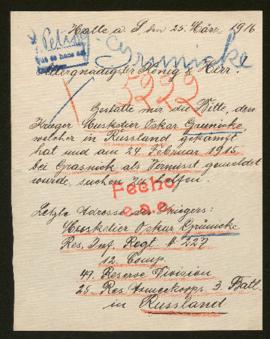 Halle a. S. den 25. März, 1916
Peticig
Gramicke
Allergnädigster König & Herr.
5222
Gestatte mir die Bitte, den
Krieger Musketier Oskar Grunicke
welcher in Russland gekämpft
hat und am 24 Februar 1915.
bei Grasnick als Vermisst gemeldet
wurde, suchen zu helfen.
Fecho
e.a.e.
Letzte Adresse des Kriegers:
Musketier Oskar Grünicke
Res. Inf. Regt. N. 227
12 Comp.
49. Reserve Division
25 Res. Armeekorps 3. Batl.
in Russland